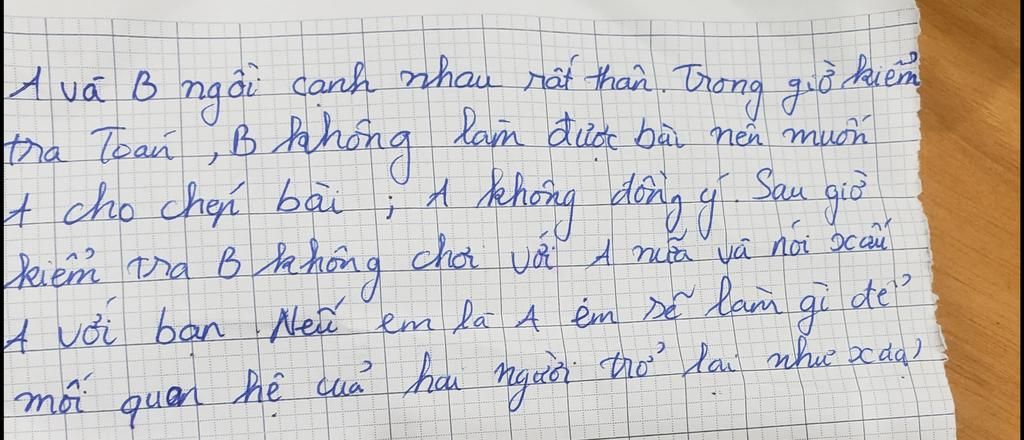 A và B ngồi cạnh nhau rất thân. Trong giờ kiểm
tra Toán, B không làm được bài nên muốn
A cho chép bài ; A không đồng ý. Sau giờ
kiểm tra B không chơi với A nữa và nói xấu
A với bạn. Nếu em là A em sẽ làm gì để
mối quan hệ của hai người trở lại như xưa?